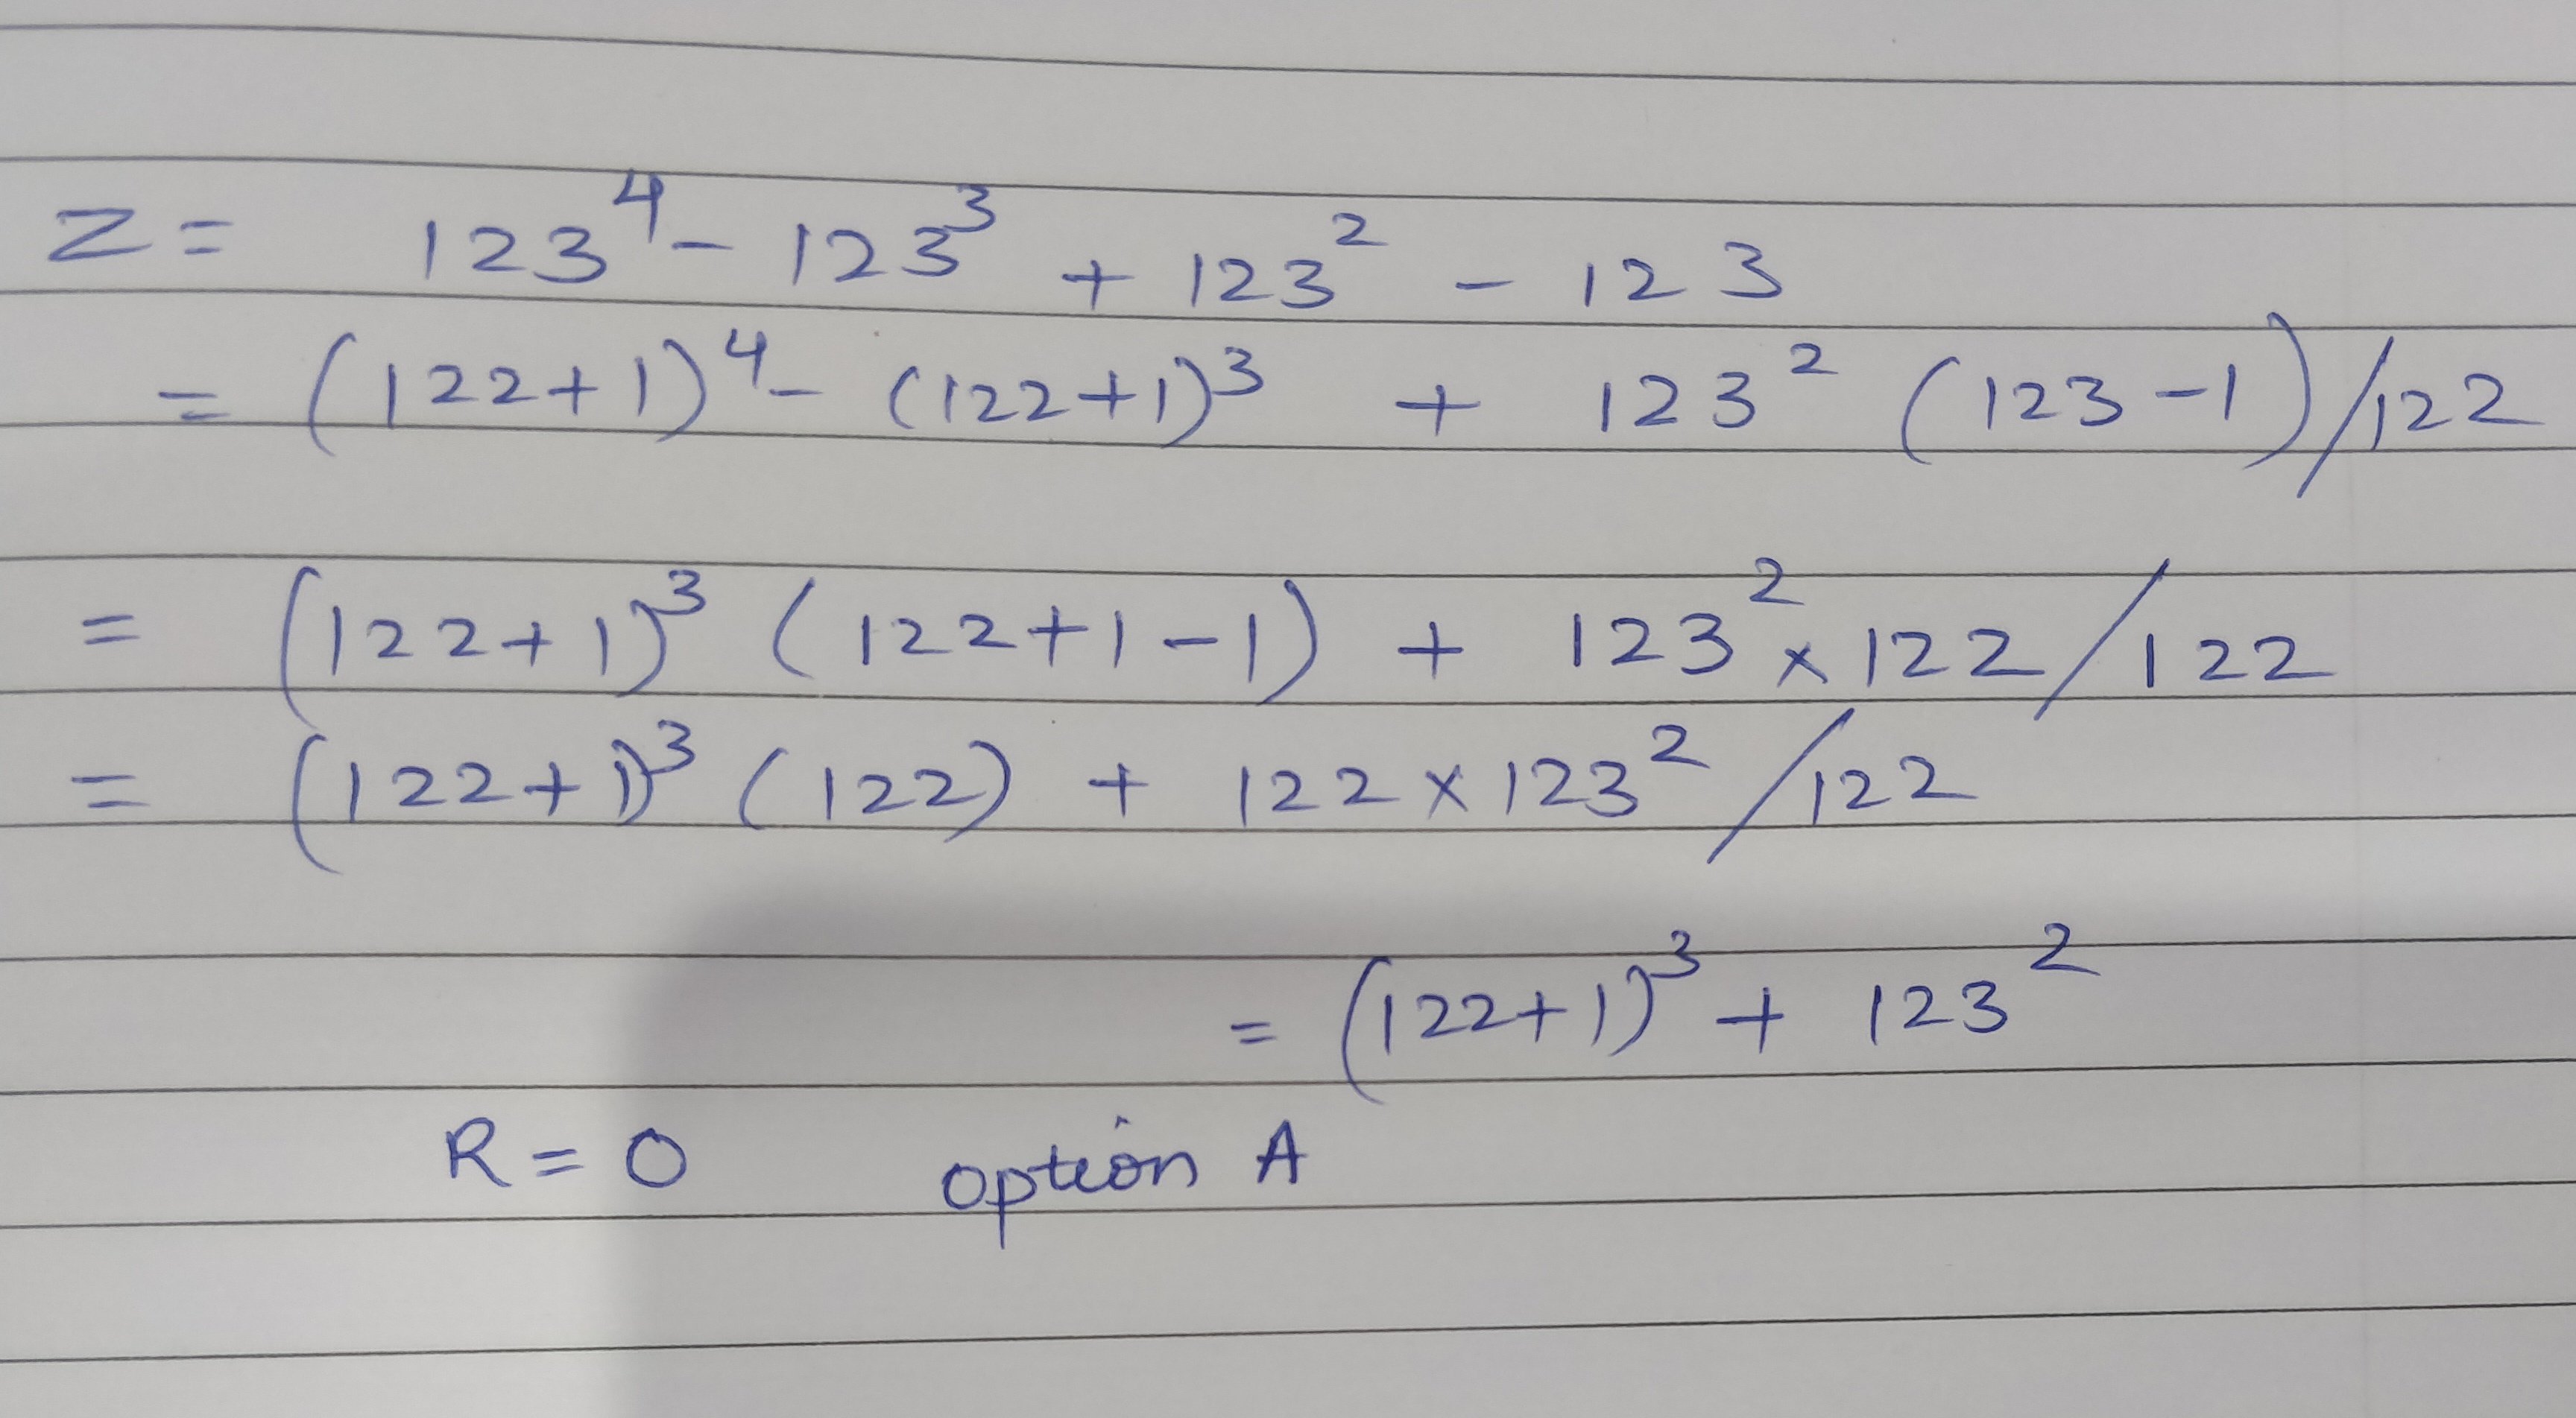 Z = 123⁴ - 123³ + 123² - 123
= (122+1)⁴ - (122+1)³ + 123² (123-1)/122
= (122+1)³ (122+1-1) + 123² × 122/122
= (122+1)³ (122) + 122 × 123² /122
= (122+1)³ + 123²
R = 0 option A